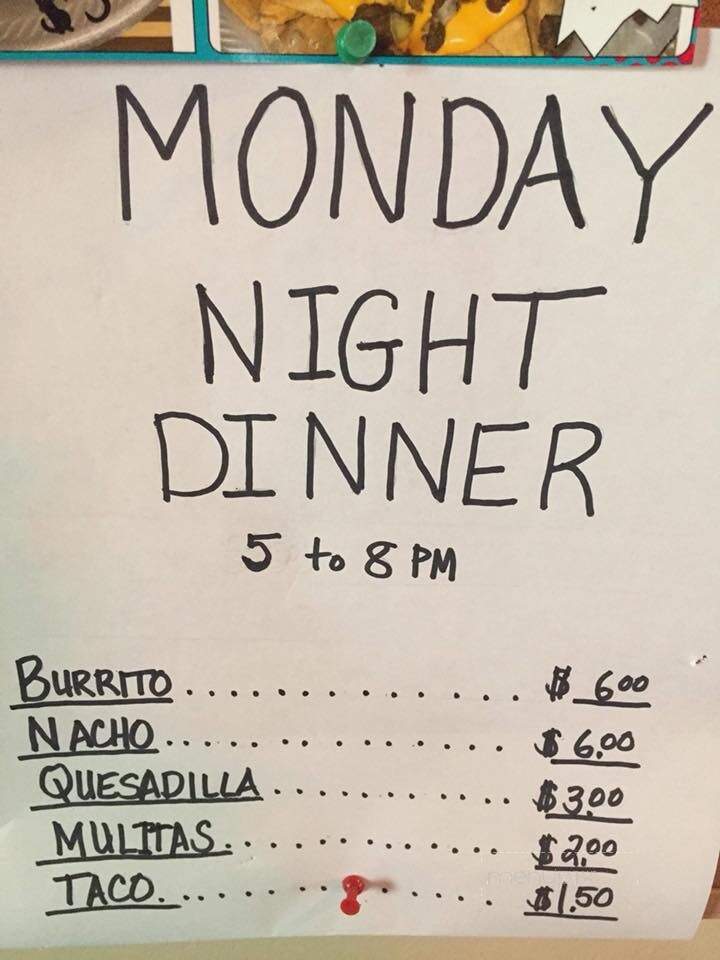 $5
MONDAY
NIGHT
DINNER
5 to 8 PM
BURRITO .................. $ 6.00
NACHO .................. $ 6.00
QUESADILLA .............. $3.00
MULITAS ................ $2.00
TACO ................... $1.50